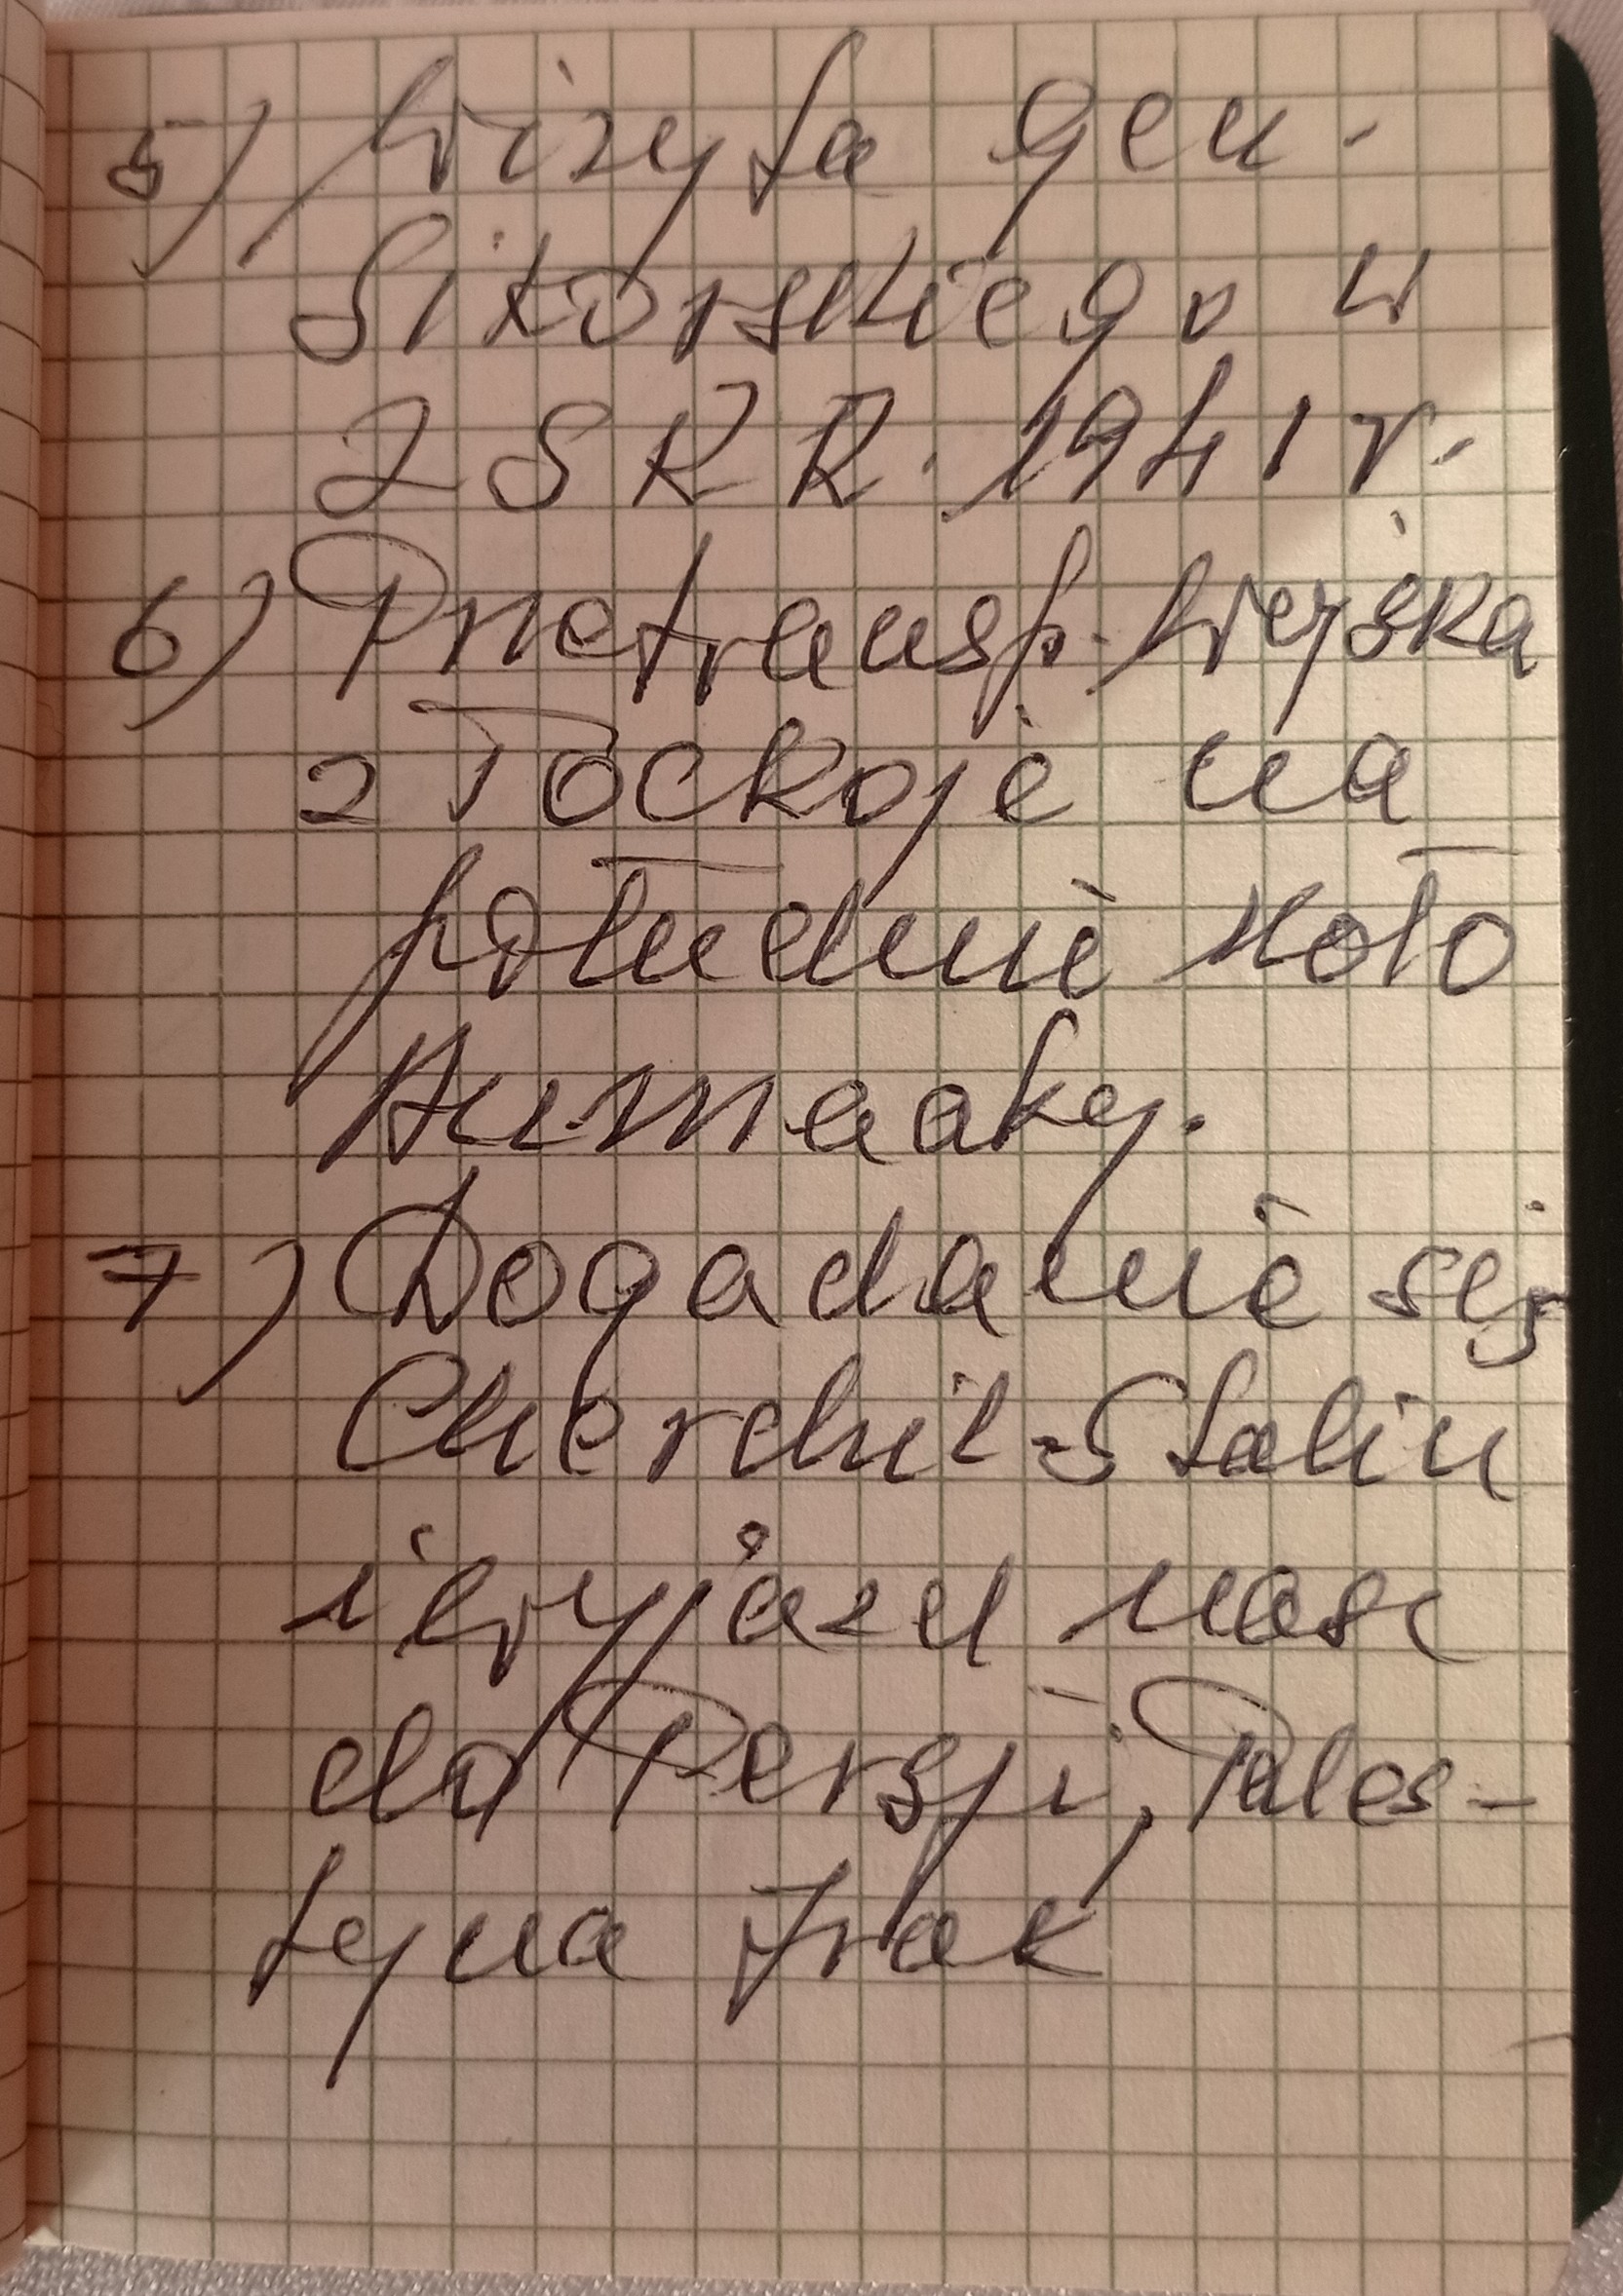 5) Wizyta Gen.
Sikorskiego w
ZSRR. 1941 r.
6) Przetransp. Wojska
z Tockoje na
południe koło
Ałmaaty.
7) Dogadanie się
Cherchil-Stalin
i wyjazd nasz
do Persji, Pales-
tyna Irak